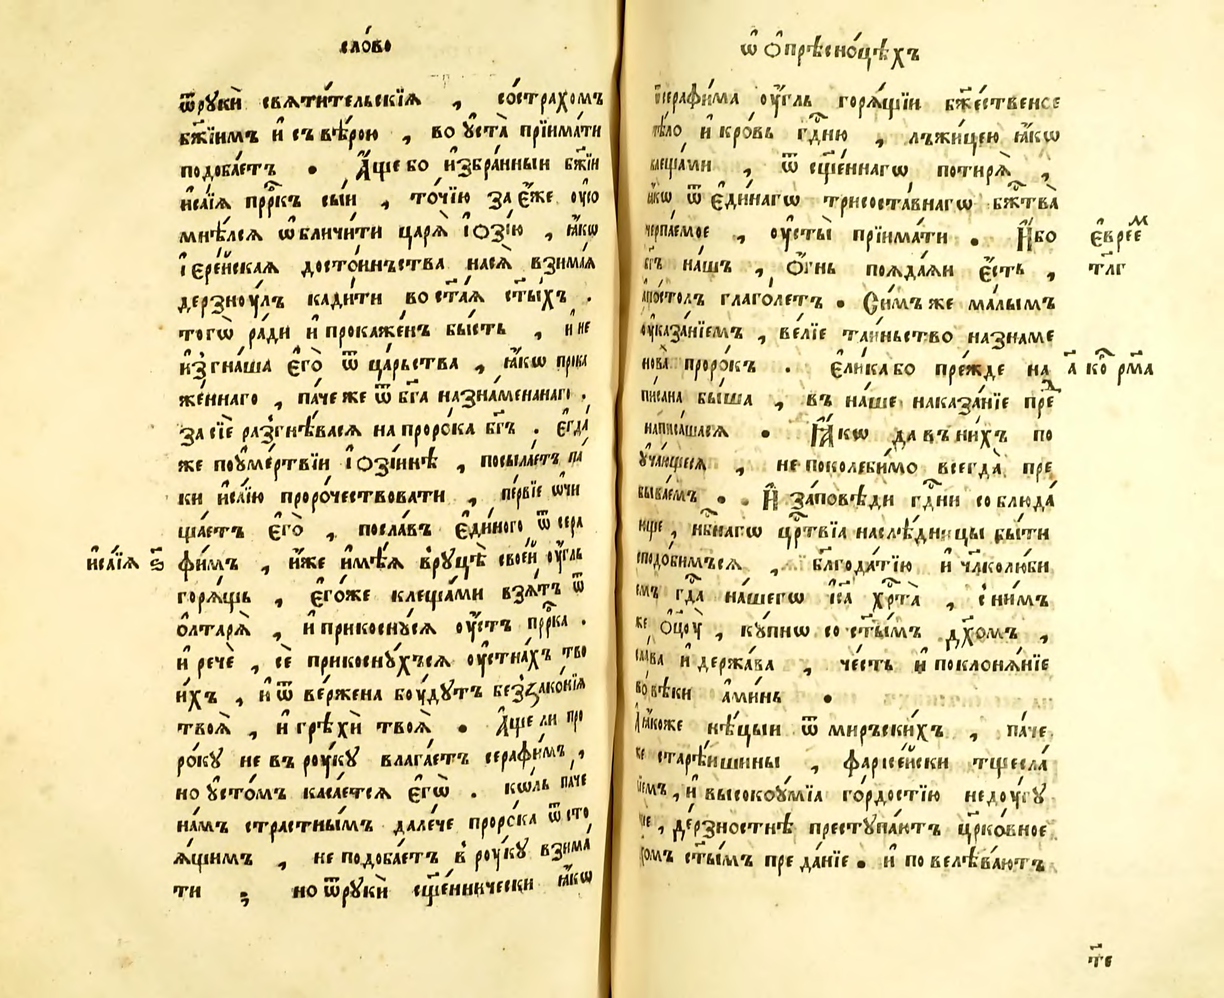 сло́во
ѿрꙋкѝ свѧти́тельскїѧ , со́страхомъ
бж҃їимъ и҆ съвѣ́рою , во ꙋ҆ста̀ прїима́ти
подоба́етъ . А҆́ще бо и҆збра́нныи бж҃їи
и҆са́їѧ прⷪ҇ркъ сы́и , то́чїю за є҆́же оу҆ю
мнѣ́лсѧ ѡ҆бличи́ти царѧ̀ і҆ѻзі́ю , ꙗ҆́кѡ
і҆ере́йскаѧ досто́инъства насѧ̀ взима́ѧ
дерзноу́лъ кади́ти во ст҃а́ѧ ст҃ы́хъ .
тогѡ̀ ра́ди и҆ прокаже́нъ бы́сть , и҆ не
и҆згна́ша є҆го̀ ѿ ца́рьства , ꙗ҆́кѡ прока
же́ннаго , па́че же ѿ бг҃а назна́менанаго .
за сїѐ разгнѣ́васѧ на проро́ка бг҃ъ . є҆гда́
же поꙋме́ртвїи і҆ѻзі́инѣ , посыла́етъ па́
ки и҆са́їю проро́чествовати , пе́рвїе ѡ҆чи
ща́етъ є҆го̀ , посла́въ є҆ди́ного ѿ сера
фи́мъ , и҆́же и҆мѣ́ѧ вруцѣ̀ свое́й оу҆́гль
горѧ́щь , є҆го́же клеща́ми взѧ́тъ ѿ
ѻ҆лтарѧ̀ , и҆ прикоснꙋ́сѧ оу҆́стъ прⷪ҇рка .
и҆ речѐ , сѐ прикоснꙋ́хъсѧ оу҆стна́хъ тво
и́хъ , и҆ ѿ ве́ржена боу́дутъ беззако́нїѧ
твоѧ̀ , и҆ грѣхѝ твоѧ̀ . А҆́ще ли про
ро́кꙋ не въ роу́кꙋ влага́етъ серафи́мъ ,
но ꙋ҆сто́мъ каса́етсѧ є҆гѡ̀ . кѡ́ль па́че
на́мъ стра́стнымъ дале́че проро́ка ѿсто
ѧ́щимъ , не подоба́етъ в роу́кꙋ взима́
ти ; но ѿрꙋкѝ сщ҃е́нничєски ꙗ҆́кѡ
и҆са́їѧ ѕ҃
ѡ҆ ѻ҆прѣсно́цѣхъ
серафи́ма оу҆́гль горѧ́щїи бж҃е́ственое
тѣ́ло и҆ кро́вь гдⷭ҇ню , лъжи́цею ꙗ҆́кѡ
клеща́ми , ѿ сщ҃е́ннагѡ потирѧ̀ ,
ꙗ҆́кѡ ѿ є҆ди́нагѡ трисоста́внагѡ бжⷭ҇тва̀
черпа́емое , оу҆сты̀ прїима́ти . И҆́бо
бг҃ъ на́шъ , ѻ҆́гнь поѧда́ѧи є҆́сть ,
апо́столъ глаго́летъ . Си́мъ же ма́лымъ
оу҆каза́нїемъ , ве́лїе та́иньство назнаме
нова̀ проро́къ . є҆ли́ка бо пре́жде на
пи́сана бы́ша , въ на́ше наказа́нїе преⷣ
написа́шасѧ . Ꙗ҆́кѡ да въ ни́хъ по
оу҆ча́ющесѧ , непоколеби́мо всегда̀ пре
быва́емъ . И҆ за́повѣди гдⷭ҇ни соблюда́
юще , нб҃нагѡ црⷭ҇твїа наслѣ́дницы бы́ти
сподо́бимъсѧ , бл҃года́тїю и҆ чл҃колю́би
емъ гдⷭ҇а на́шегѡ і҆с҃а хрⷭ҇та̀ , с ни́мъ
же ѻ҆ц҃оу̀ , кꙋ́пнѡ со ст҃ы́мъ дх҃омъ ,
сла́ва и҆ держа́ва , че́сть и҆ поклонѧ́нїе
во́ вѣки а҆ми́нь .
ꙗ҆́коже нѣ́цыи ѿ ми́ръскихъ , па́че
же старѣ́ишины , фарисе́йски тщесла́
їемъ , и҆ высокоꙋ́мїа го́рдостїю недоу́гꙋ
, де́рзностнѣ престꙋпа́ютъ цр҃ко́вное
ст҃ы́мъ пре да́нїе . и҆ повелѣва́ютъ
є҆вре́еⷨ
тл҃г
а҃ ко рм҃а
т҃е